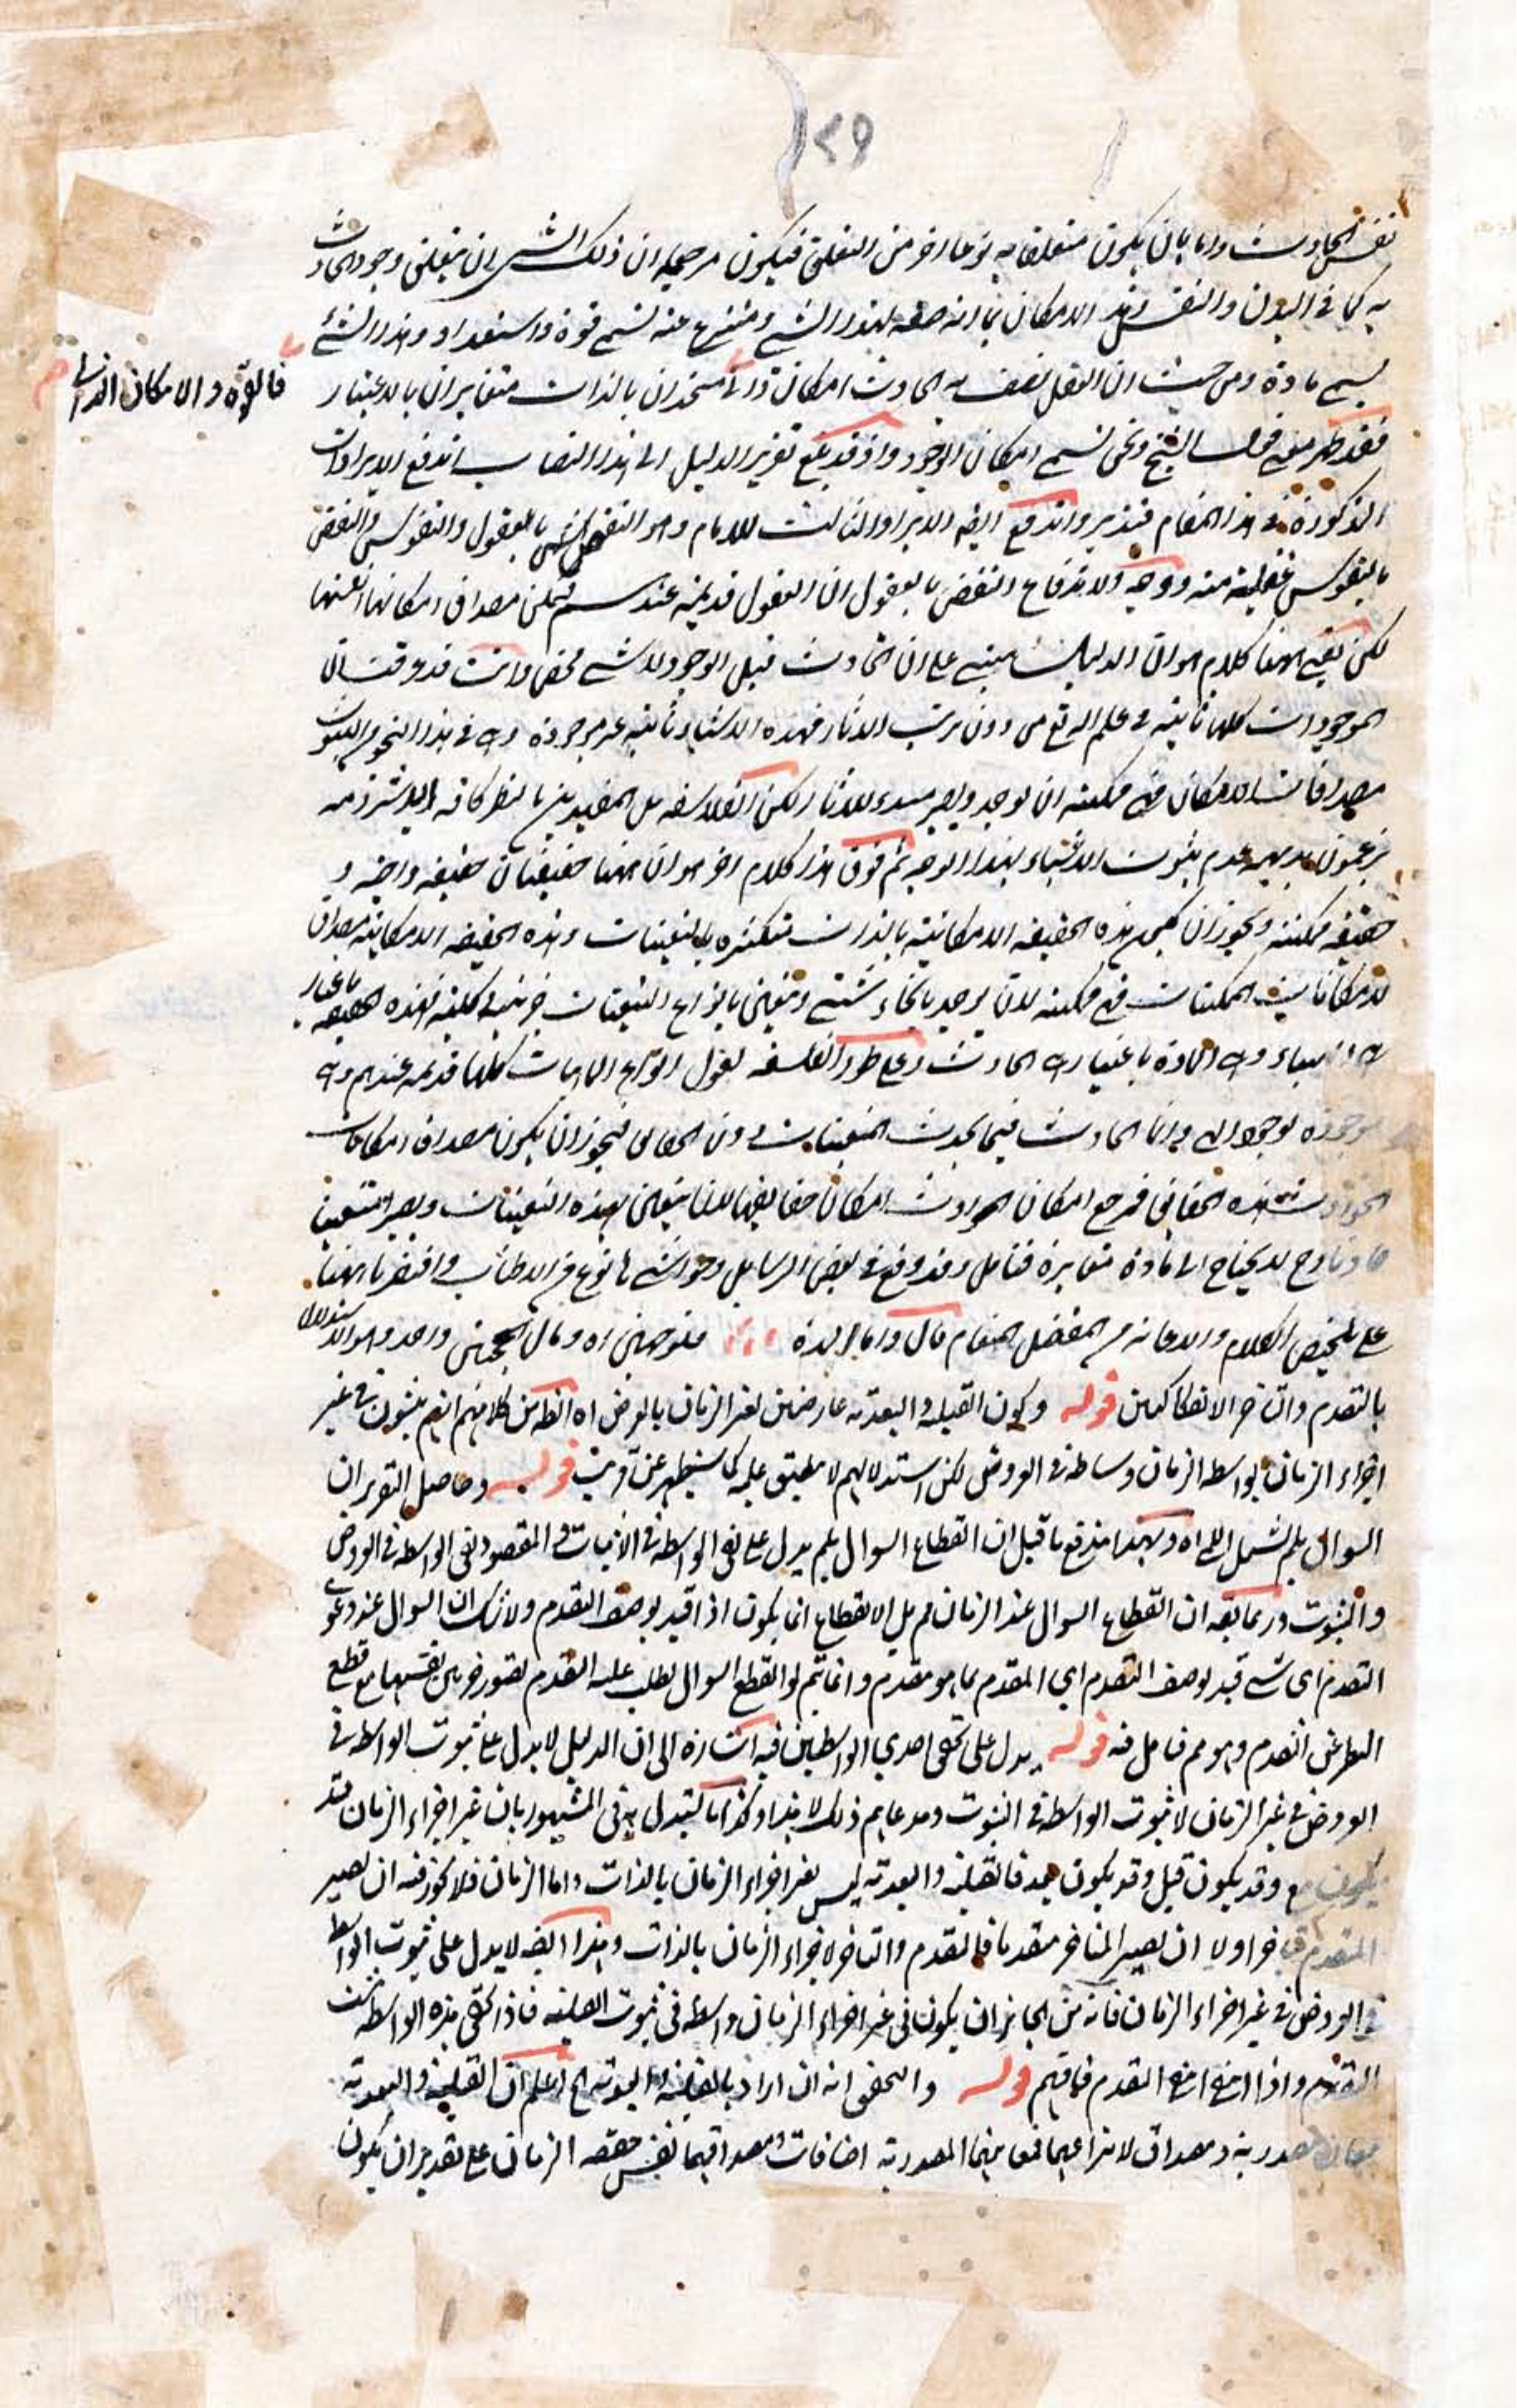 ٢٩
نفس الحادث واما بان يكون متعلقا به نوعا اخر من التعلق فيكون مرجعه ان ذلك الشي ان يتعلق وجود الحادث
به كما في البدن والنفس الامكان بما انه صفة لهذا الشي منتزع عنه تسمى قوة واستعدادا وهذا الشئ
يسمى مادة ومن حيث ان العقل يصف به الحادث امكان ذاتي متحدان بالذات متغايران بالاعتبار
فالقوة والامكان الذاتي
فقد ظهر معنى قول الشيخ ونحن نسمي امكان الوجود واذ قد بلغ تقرير الدليل الى هذا النصاب اندفع الايرادات
المذكورة في هذا المقام فتدبر واندفع ايضا الايراد الثالث للامام وهو النقض بالعقول والنفوس والنقض
بالنفوس غفلة منه ووجه الاندفاع النقض بالعقول ان العقول قديمة عندهم فيمكن مصداق امكانها انفسها
لكن بقي ههنا كلام هو ان الدليل مبني على ان الحادث قبل الوجود لا شي محض وانت قد وقفت ان
الموجودات كلها ثابتة في علم الله تع من دون ترتب الاثار فهذه الاشياء ثابتة غير موجودة وهي في هذا النحو من الثبوت
مصداقات الامكان فهي ممكنة ان توجد وتصير مبدء للاثار لكن الفلاسفة بل المقيدين بالنظر كافة الا شرذمة
يزعمون بديهة عدم ثبوت الاشياء بهذا الوجه ثم فوق هذا كلام اخر هو ان ههنا حقيقتان حقيقة واجبة و
حقيقة ممكنة ويجوز ان يكون هذه الحقيقة الامكانية بالذات متكثرة بالتعينات وهذه الحقيقة الامكانية مصداق
لامكانات الممكنات فهي ممكنة لان توجد بانحاء شتى وتتعين بانواع التعينات جزئية وكلية فهذه الحقيقة باعتبار
وهي المادة باعتبار الحادث وعلى طور الفلسفة نقول انواع الماهيات كلها قديمة عندهم وهي
موجودة بوجود الهي وانما الحادث فيما يحدث التعينات دون الحقائق فيجوز ان يكون مصداق امكانات
الحوادث هذه الحقائق فمرجع امكان الحوادث امكان حقايقها لان يتعين بهذه التعينات ويصير متعينا
حادثا وح لا يحتاج الى مادة متغايرة فتامل وقد وقع في بعض الرسايل وحواشيها نوع من الاطناب واقتصرنا ههنا
على تلخيص الكلام والاعانة من المفضل المنعام قال واما البدة فنوجهين اه ومال الحجتين واحد وهو الاستدلال
بالتقدم والتاخر الانفكاكيين قوله وكون القبلية والبعدية عارضتين لغير الزمان بالعرض اه الظ من كلامهم انهم يثبتون في غير
اجزاء الزمان بواسطة الزمان وساطة في العروض لكن استدلالهم لا ينطبق عليه كما سيظهر عن قريب قوله وحاصل التقرير ان
السوال بلم يشمل الي اه وبهذا اندفع ما قيل ان انقطاع السوال بلم يدل على نفي الواسطة في الاثبات والمقصود نفي الواسطة في العروض
والثبوت وربما يقه ان انقطاع السوال عند الزمان مم بل الانقطاع انما يكون اذا قيد بوصف التقدم ولا شك ان السوال عند دعوى
التقدم اي شي قيد بوصف التقدم اي المقدم بما هو مقدم وانما يتم لو انقطع السوال بطلب علة التقدم بتصور جزئين نفسهما مع قطع
النظر عن التقدم وهو مم فتامل فيه قوله يدل على تحقق احدي الواسطتين فيه اشارة الى ان الدليل لا يدل على ثبوت الواسطة في
العروض في غير الزمان لا ثبوت الواسطة في الثبوت ومدعاهم ذلك لا هذا وكذا ما يستدل به في المشهور بان غير اجزاء الزمان قد
يكون مع وقد يكون قبل وقد يكون بعد فالقبلية والبعدية ليس لغير اجزاء الزمان بالذات واما الزمان فلا يجوز فيه ان يصير
المتقدم متاخرا ولا ان يصير المتاخر متقدما فالتقدم والتاخر لاجزاء الزمان بالذات وهذا ايضا لا يدل على ثبوت الواسطة
في العروض في غير اجزاء الزمان فانه من الجائز ان يكون في غير اجزاء الزمان واسطة في ثبوت القبلية فاذا تحقق هذه الواسطة ثبت
التقدم واذا انتفى انتفى التقدم فافهم قوله والتحقق انه ان اراد بالقبلية والبعدية الخ اعلم ان القبلية والبعدية
معان مصدرية ومصداق لانتزاعهما فمعانيهما المصدرية اضافات ومصداقهما نفس حقيقة الزمان على تقدير ان يكون